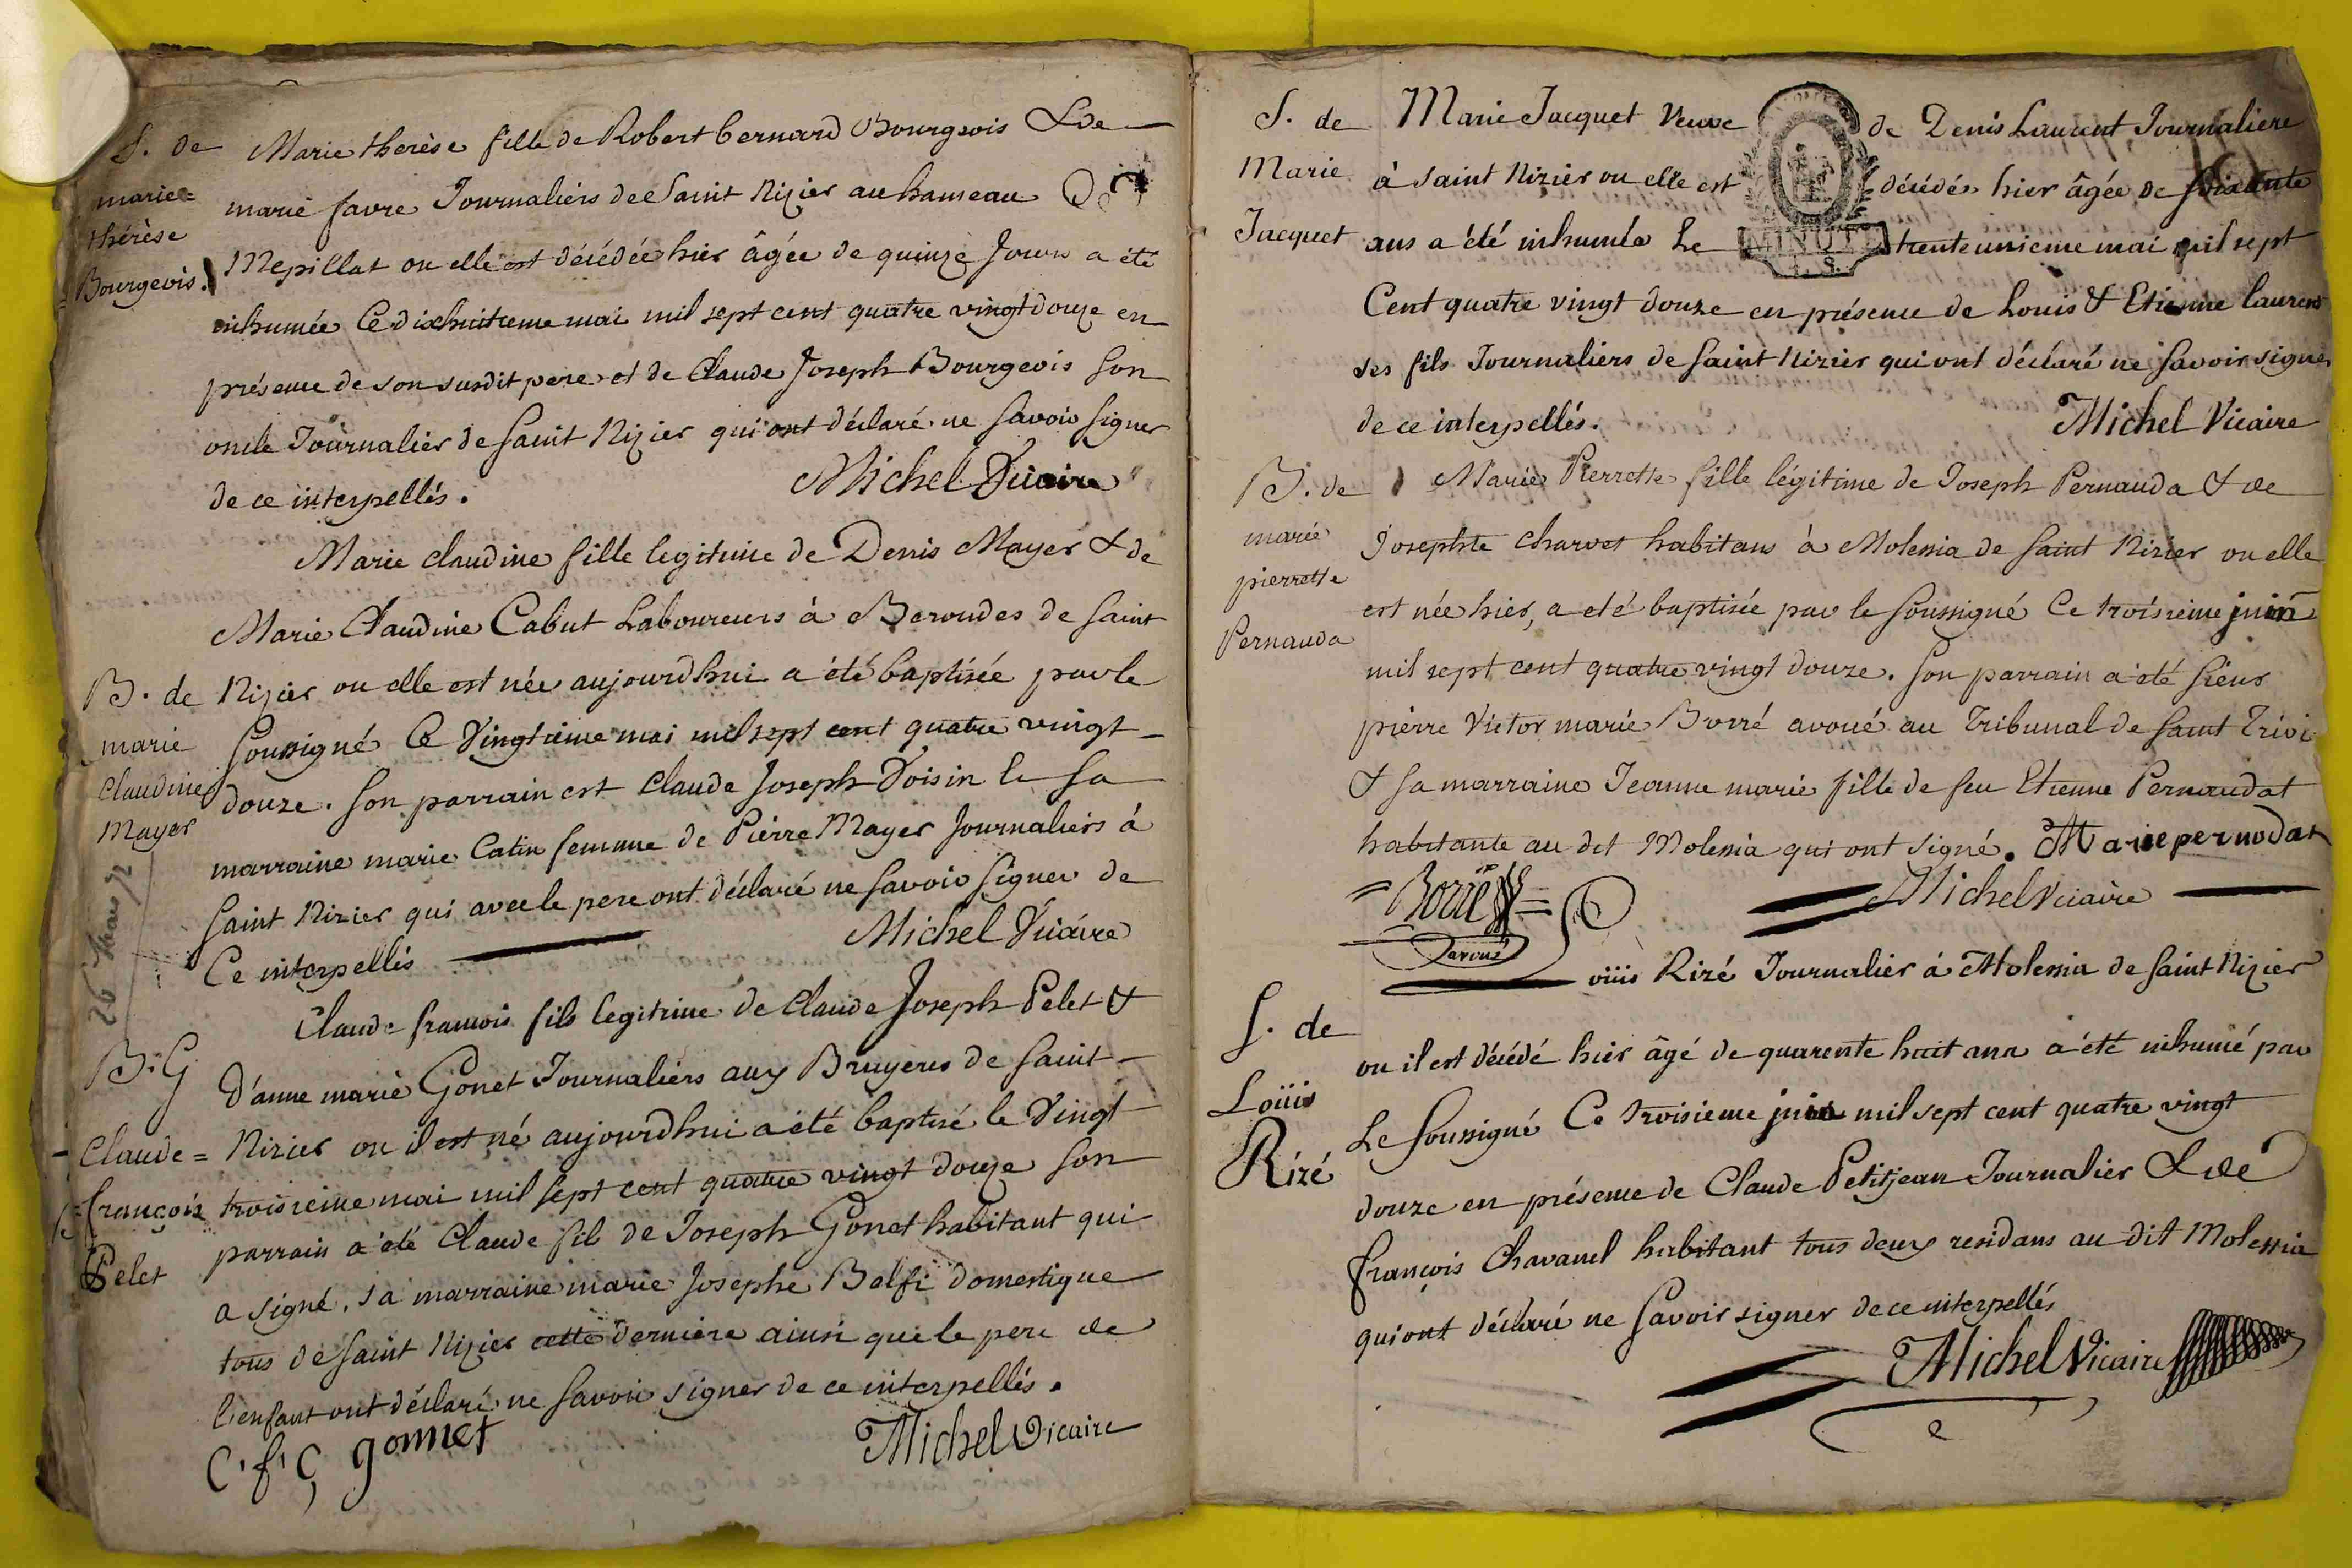 S. de
marie=
thérèse
Bourgeois.
Marie therèse fille de Robert bernard Bourgeois & de
marie favre Journaliers de Saint Nizier au hameau De
Mepillat ou elle est décédée hier âgée de quinze Jours a été
inhumée Ce dixhuitieme mai mil sept cent quatre vingt douze en
présence de son susdit pere et de Claude Joseph Bourgeois son
oncle Journalier de Saint Nizier qui ont déclaré ne savoir signer
de ce interpellés.
Michel Vicaire
B. de
marie
Claudine
Mayer
Marie claudine fille legitime de Denis Mayer & de
Marie Claudine Cabut Laboureurs à Beroudes de saint
Nizier ou elle est née aujourdhui a été baptisée par le
soussigné Ce Vingtieme mai mil sept cent quatre vingt
douze. son parrain est Claude Joseph Voisin le sa
marraine marie Catin femme de Pierre Mayer Journaliers à
saint Nizier qui avec le pere ont déclaré ne savoir signer de
Ce interpellés
Michel Vicaire
26
B. G
Claude =
françois
Pelet
Claude francois fils legitime de Claude Joseph Pelet &
D'anne marie Gonet Journaliers aux Bruyeres de saint
Nizier ou il est né aujourdhui a été baptisé le Vingt
troisieme mai mil sept cent quatre vingt douze son
parrain a été Claude fils de Joseph Gonet habitant qui
a signé. sa marraine marie Josephe Balfi domestique
tous de saint Nizier cette derniere ainsi que le pere de
l'enfant ont déclaré ne savoir signer de ce interpellés.
C. f. G gonnet
Michel Vicaire
S. de
Marie
Jacquet
Marie Jacquet Veuve de Denis Laurent Journaliere
à saint Nizier ou elle est décédée hier âgée de soixante
ans a été inhumée Le trente unieme mai mil sept
MINUT
Cent quatre vingt douze en présence de Louis & Etienne laurent
ses fils Journaliers de saint Nizier qui ont déclaré ne savoir signer
de ce interpellés.
Michel Vicaire
B. de
marie
pierrette
Pernauda
Marie Pierrette fille légitime de Joseph Pernauda & de
Josephte Charvet habitans à Molessia de saint Nizier ou elle
est née hier, a été baptisée par le soussigné Ce troisieme juin
mil sept cent quatre vingt douze. son parrain a été sieur
pierre Victor marie Borré avoué au Tribunal de saint Trivi
& sa marraine Jeanne marie fille de feu Etienne Pernaudat
habitante au dit Molessia qui ont signé. Marie pernodat
Borré
avoué
Michel Vicaire
S. de
Loüis
Rizé
oüis Rizé Journalier à Molessia de saint Nizier
ou il est décédé hier âgé de quarente huit ans a été inhumé par
Le soussigné Ce troisieme juin mil sept cent quatre vingt
douze en présence de Claude Petitjean Journalier & de
françois Chavanel habitant tous deux residans au dit Molessia
qui ont déclaré ne savoir signer de ce interpellés
Michel Vicaire